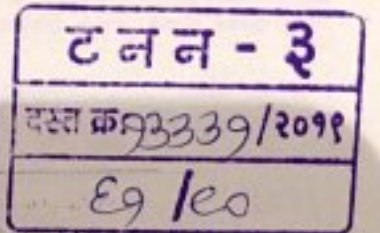 ट न न - ३
दस्त क्र. १३३३१/२०१९
६१ /९०